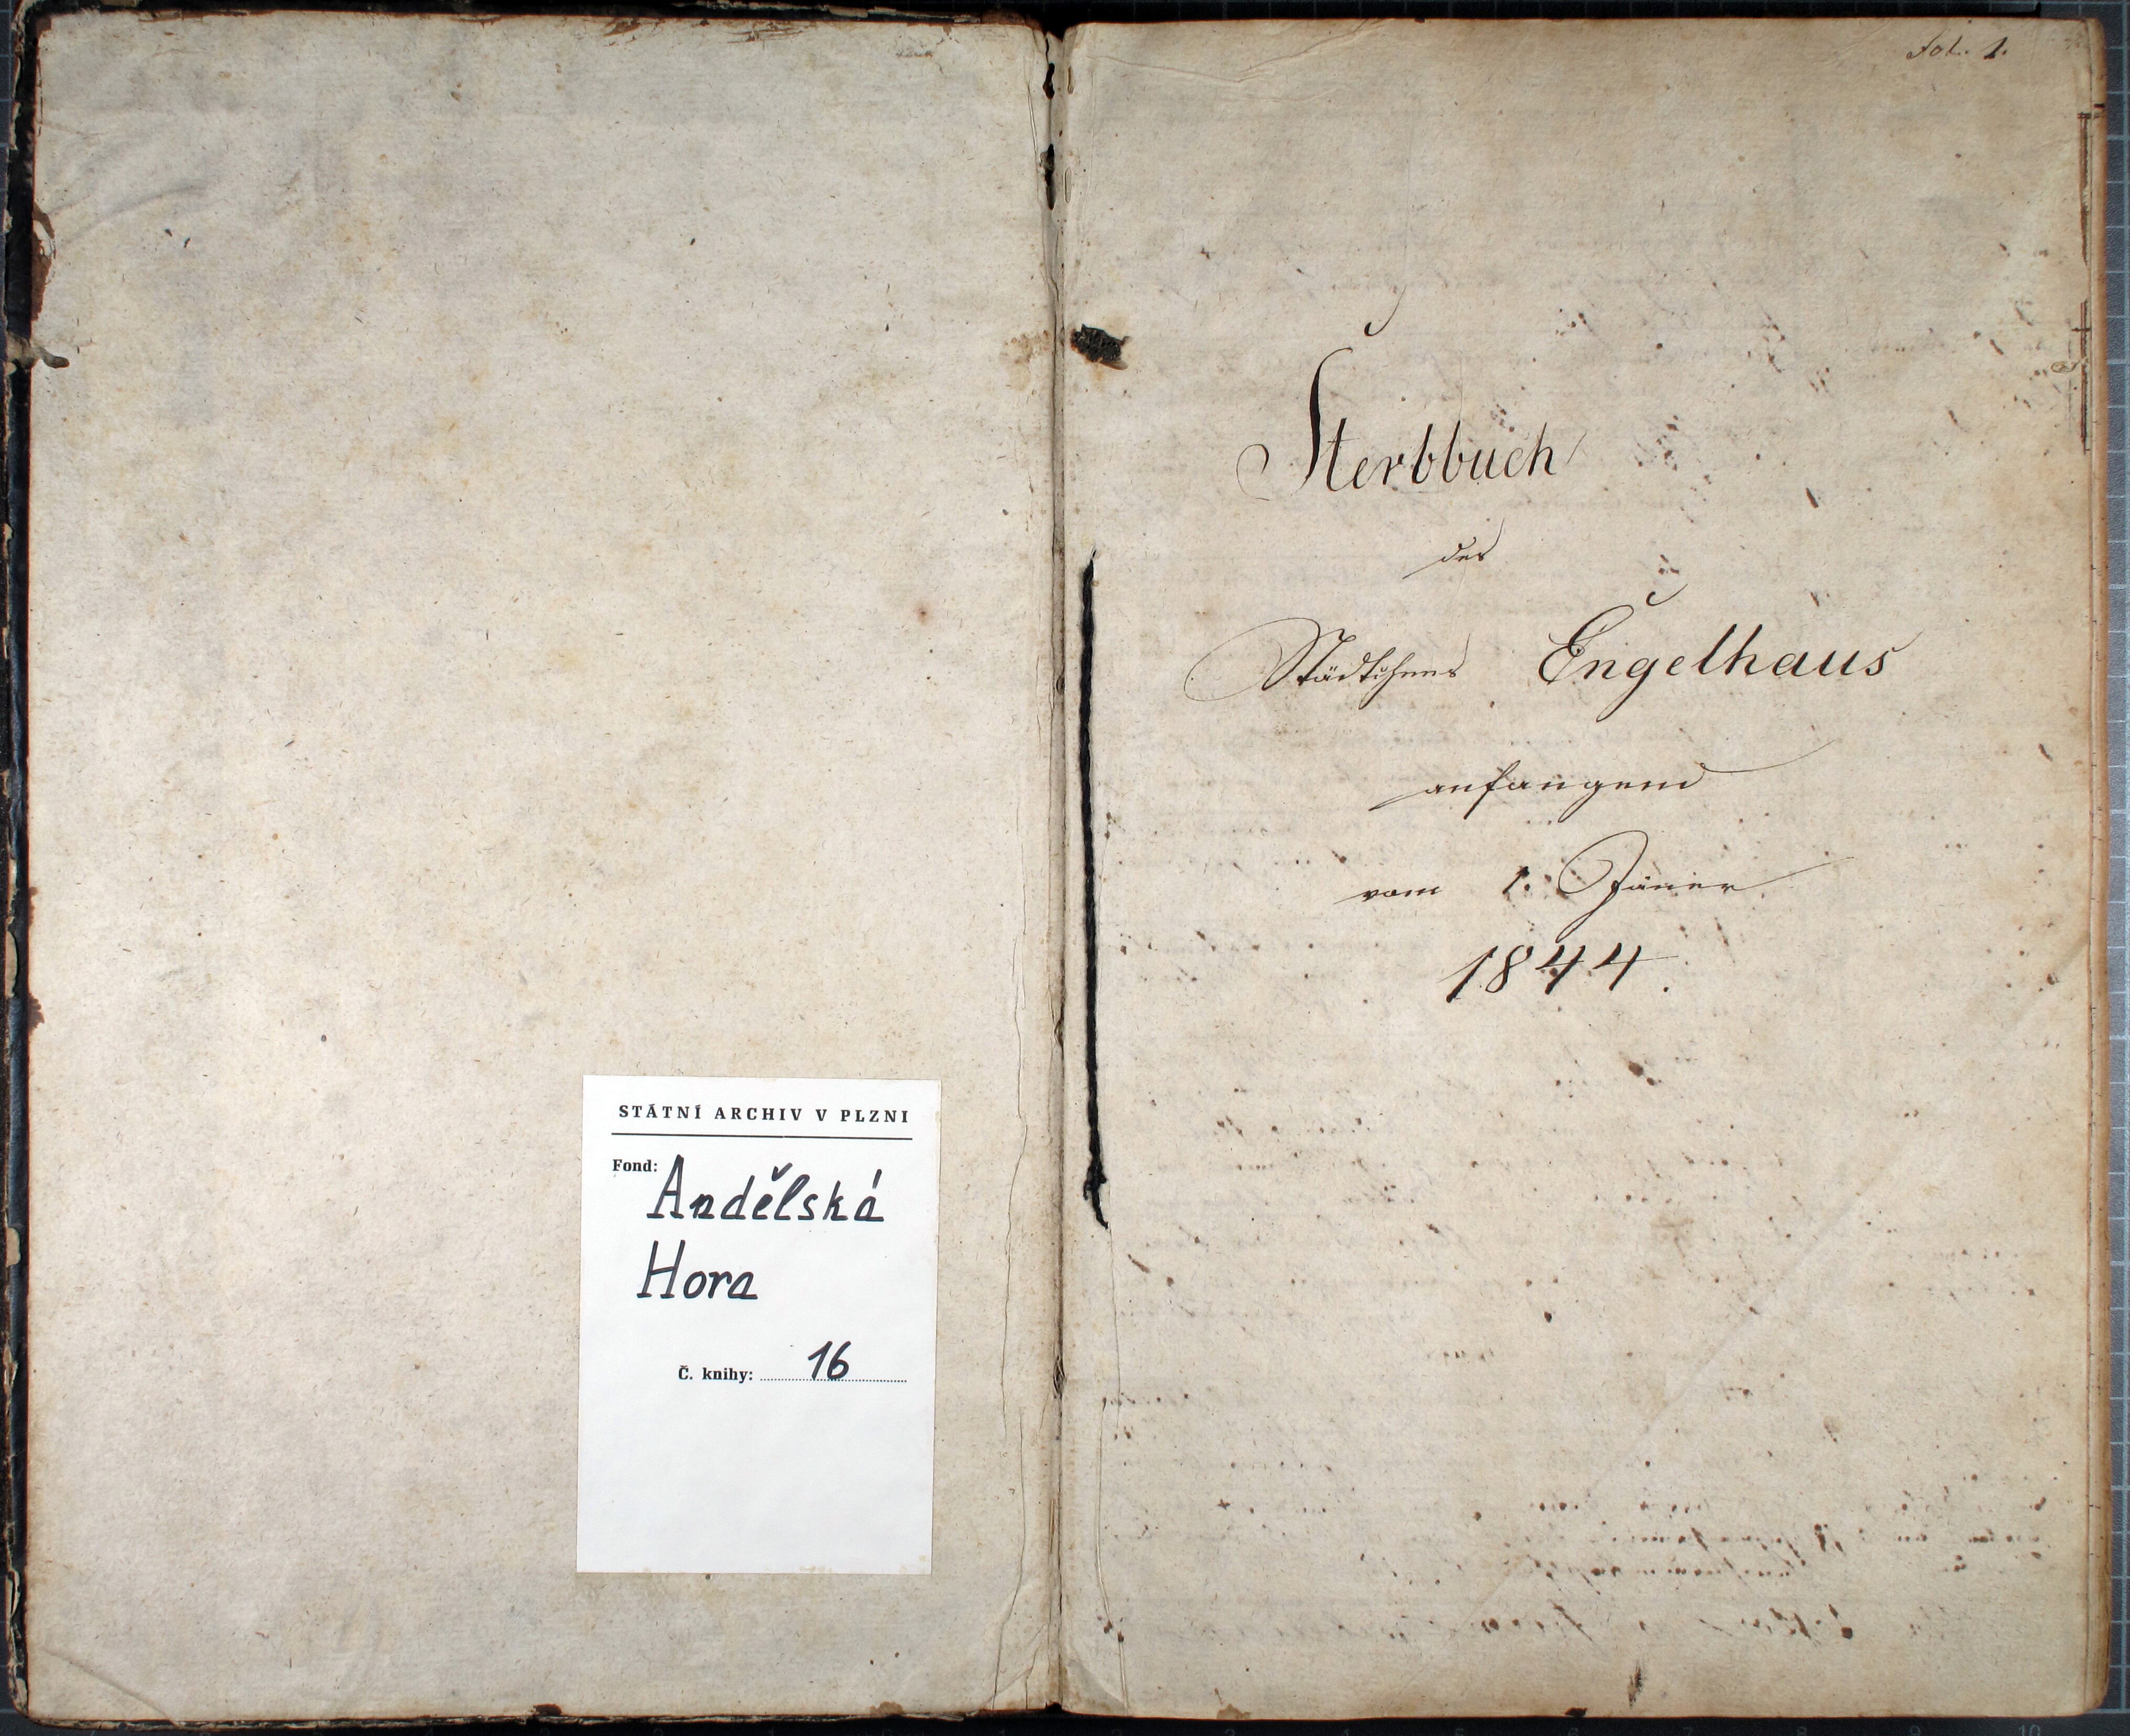 STÁTNÍ ARCHIV V PLZNI
Fond:
Andělská
Hora
Č. knihy: 16
fol. 1.
Sterbbuch
des
Städtchens Engelhaus
anfangend
vom 1. Jäner
1844.